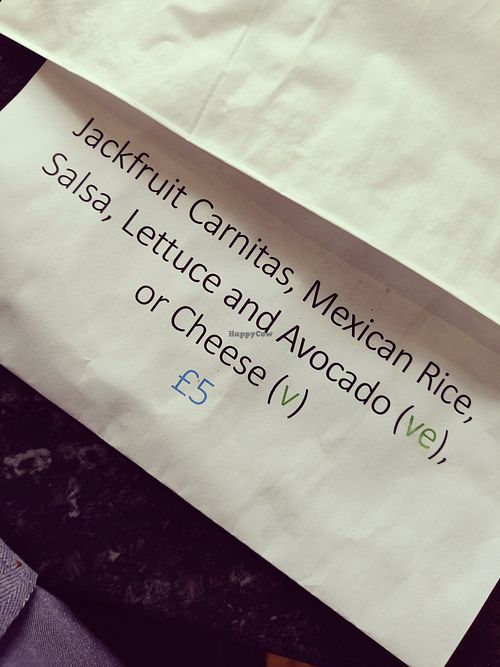 Jackfruit Carnitas, Mexican Rice,
Salsa, Lettuce and Avocado (ve),
or Cheese (v)
£5
HappyCow